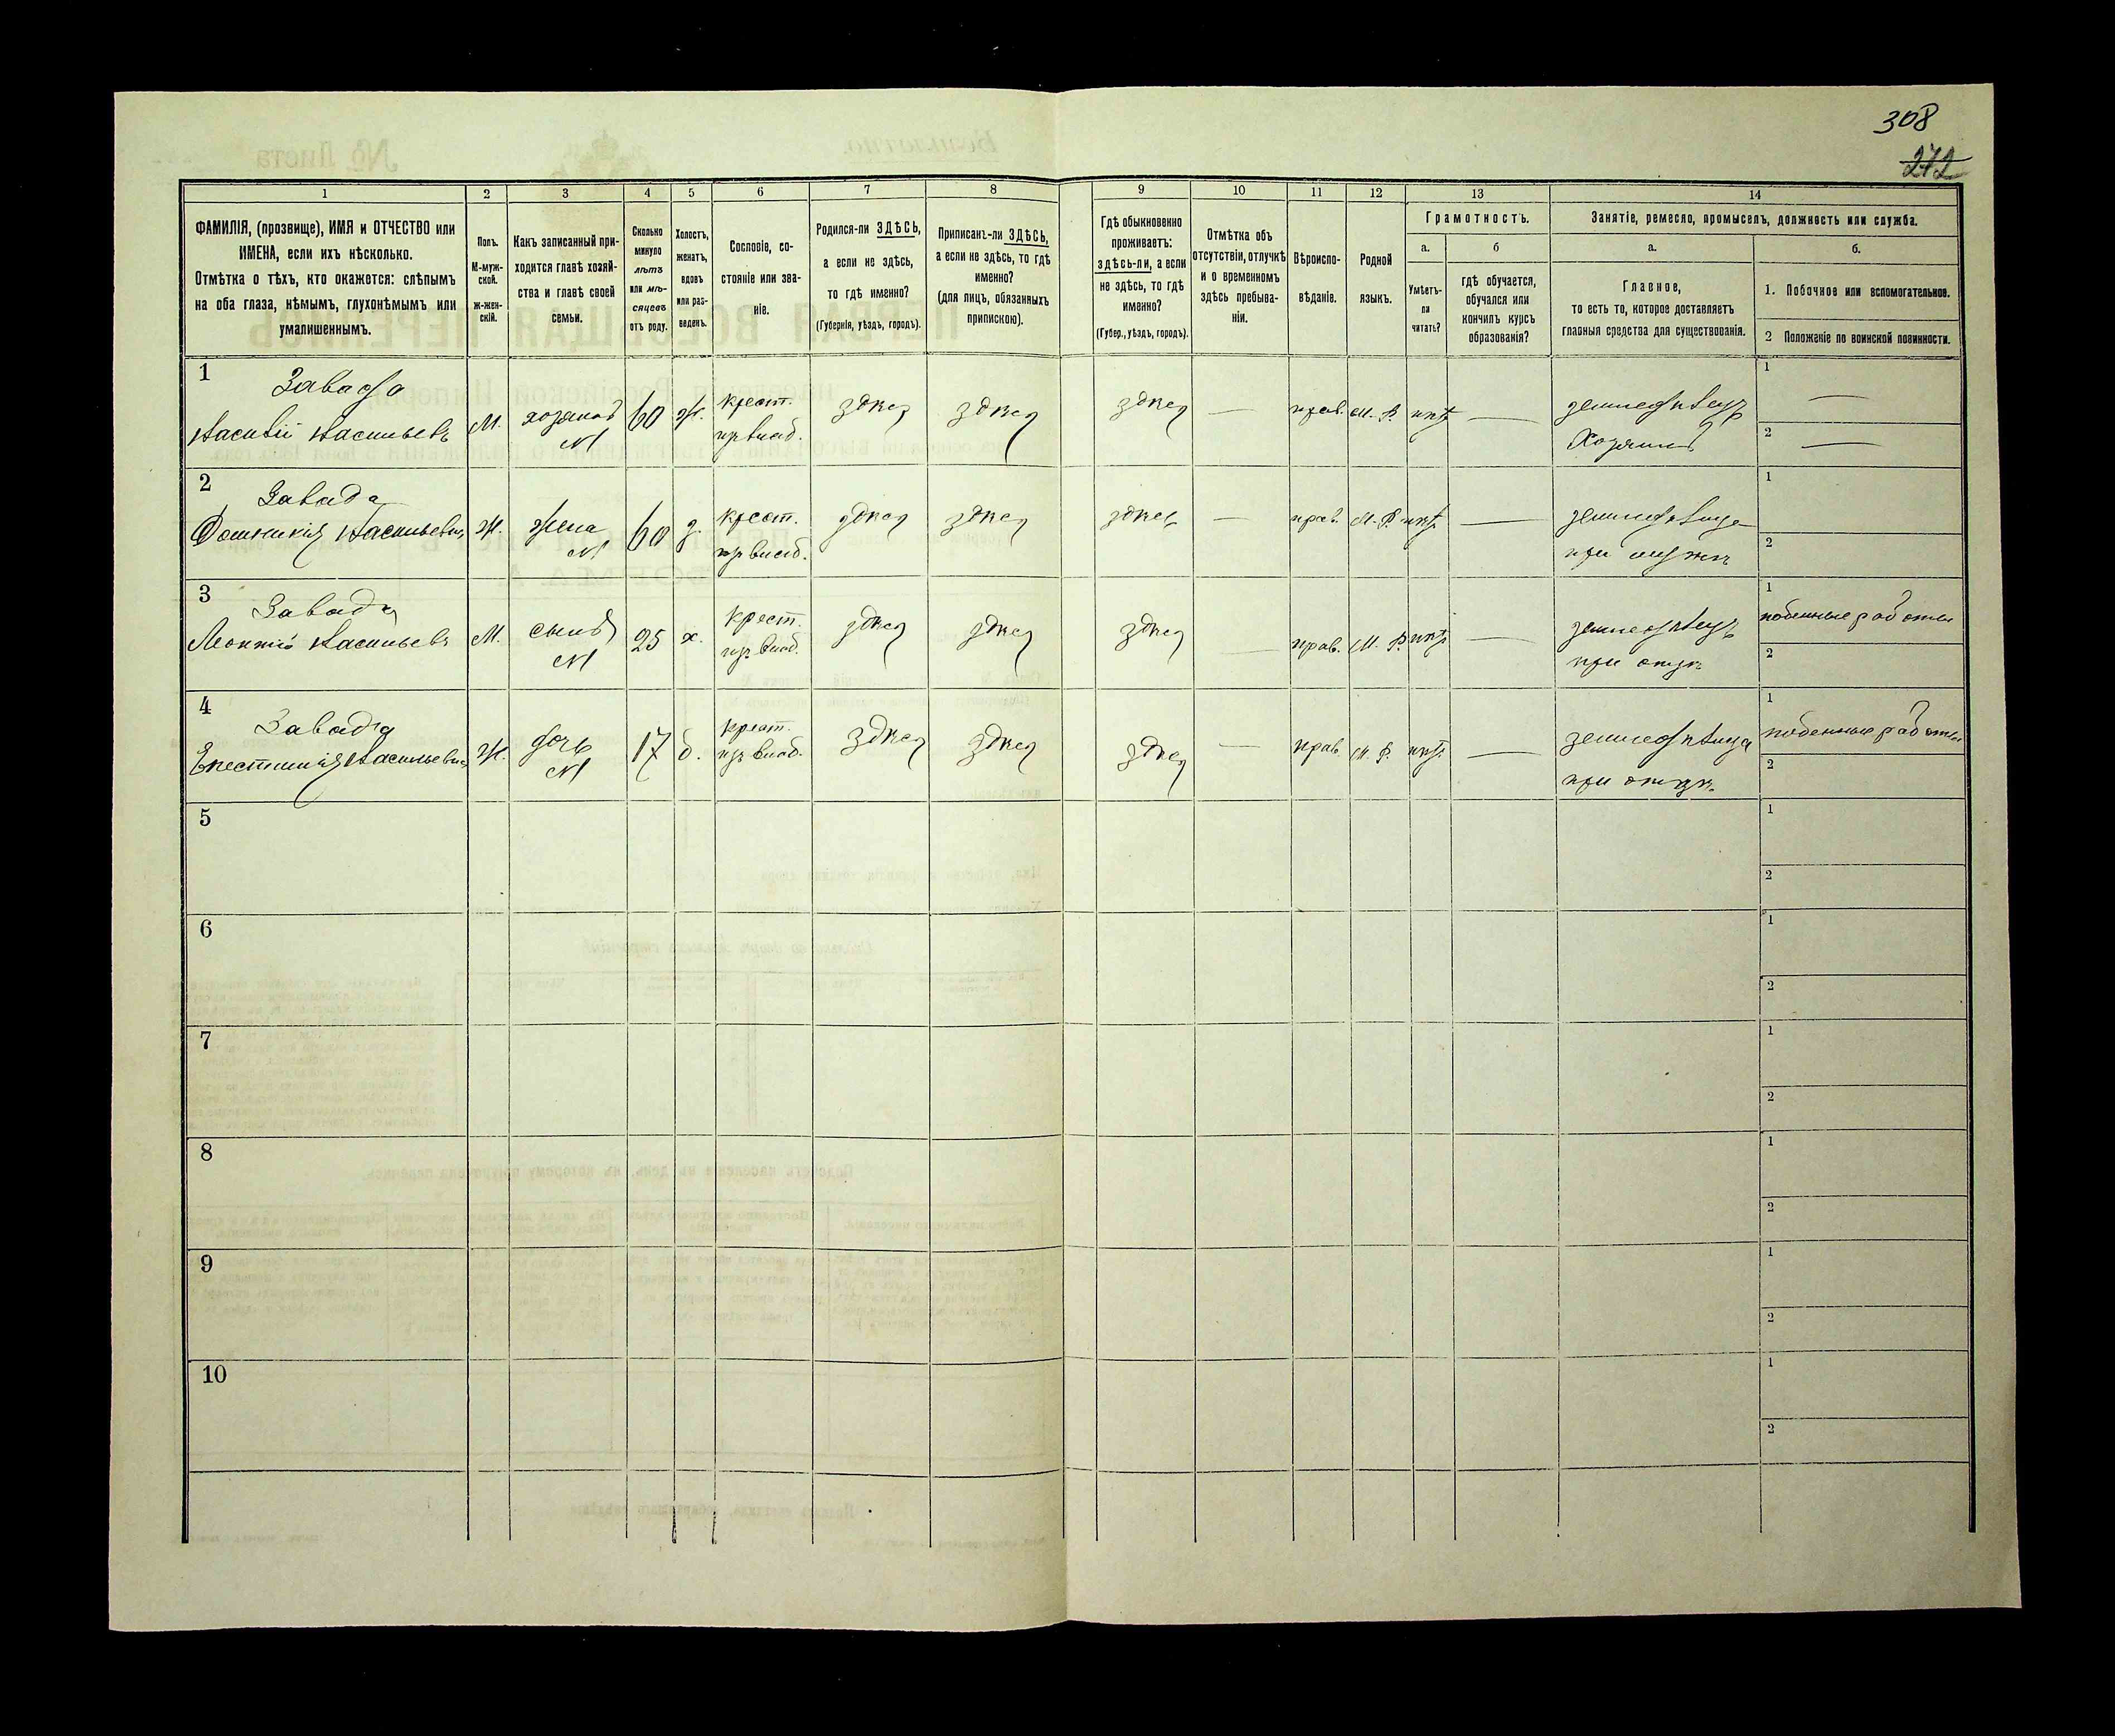 308
272
1
2
3
4
5
6
7
8
9
10
11
12
13
14
ФАМИЛІЯ, (прозвище), ИМЯ и ОТЧЕСТВО или
ИМЕНА, если ихъ нѣсколько.
Отмѣтка о тѣхъ, кто окажется: слѣпымъ
на оба глаза, нѣмымъ, глухонѣмымъ или
умалишеннымъ.
Полъ.
М-муж-
ской.
ж-жен-
скій.
Какъ записанный при-
ходится главѣ хозяй-
ства и главѣ своей
семьи.
Сколько
минуло
лѣтъ
или мѣ-
сяцевъ
отъ роду.
Холостъ,
женатъ,
вдовъ
или раз-
веденъ.
Сословіе, со-
стояніе или зва-
ніе.
Родился-ли ЗДѢСЬ,
а если не здѣсь,
то гдѣ именно?
(Губернія, уѣздъ, городъ).
Приписанъ-ли ЗДѢСЬ,
а если не здѣсь, то гдѣ
именно?
(для лицъ, обязанныхъ
припискою).
Гдѣ обыкновенно
проживаетъ:
здѣсь-ли, а если
не здѣсь, то гдѣ
именно?
(Губер., уѣздъ, городъ).
Отмѣтка объ
отсутствіи, отлучкѣ
и о временномъ
здѣсь пребыва-
ніи.
Вѣроиспо-
вѣданіе.
Родной
языкъ.
Грамотность.
а.
Умѣетъ-
ли
читать?
б
гдѣ обучается,
обучался или
кончилъ курсъ
образованія?
Занятіе, ремесло, промыселъ, должность или служба.
а.
Главное,
то есть то, которое доставляетъ
главныя средства для существованія.
б.
1. Побочное или вспомогательное.
2 Положеніе по воинской повинности.
1
Завада
Василій Васильевъ
М.
хозяинъ
60
ж.
крест.
из влад.
здѣсь
здѣсь
здѣсь
—
прав.
М. Р.
нѣтъ
—
земледѣлецъ
Хозяинъ
1
—
2
—
2
Завада
Васильевна
Ж.
жена
60
з.
крест.
из влад.
здѣсь
здѣсь
здѣсь
—
прав.
М. Р.
нѣтъ
—
земледѣлица
при мужѣ
1
2
3
Завада
Леонтій Васильевъ
М.
сынъ
25
х.
крест.
из влад.
здѣсь
здѣсь
здѣсь
—
прав.
М. Р.
нѣтъ
—
земледѣлецъ
при отцѣ
1
поденныя работы
2
4
Завада
Васильевна
Ж.
дочь
17
д.
крест.
из влад.
здѣсь
здѣсь
здѣсь
—
прав.
М. Р.
нѣтъ
—
земледѣлица
при отцѣ
1
поденныя работы
2
5
1
2
6
1
2
7
1
2
8
1
2
9
1
2
10
1
2